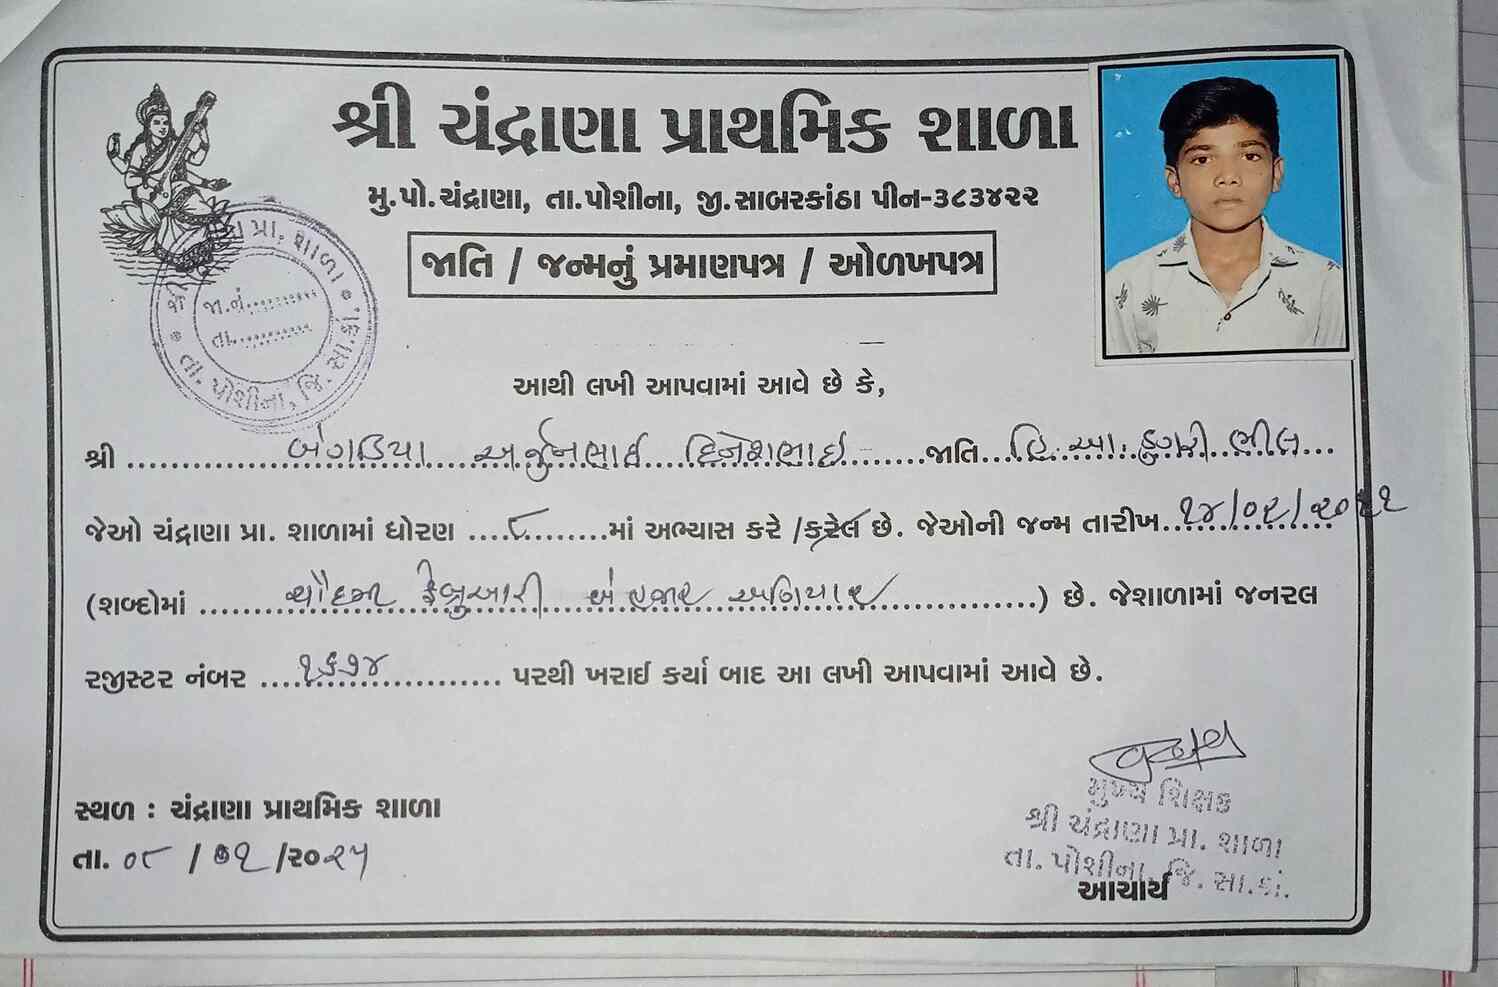 શ્રી ચંદ્રાણા પ્રાથમિક શાળા
મુ.પો.ચંદ્રાણા, તા.પોશીના, જી.સાબરકાંઠા પીન-૩૮૩૪૨૨
જાતિ / જન્મનું પ્રમાણપત્ર / ઓળખપત્ર
પ્રા. શાળા
જા.નં..........
તા...........
તા. પોશીના, જિ. સા.કાં.
આથી લખી આપવામાં આવે છે કે,
શ્રી ............બંગડિયા અર્જુનભાઈ દિનેશભાઈ........જાતિ...હિ.આ.ડુંગરી ભીલ...
જેઓ ચંદ્રાણા પ્રા. શાળામાં ધોરણ ....૮.........માં અભ્યાસ કરે /કરેલ છે. જેઓની જન્મ તારીખ..૧૪/૦૨/૨૦૧૧
(શબ્દોમાં ..........ચૌદમી ફેબ્રુઆરી બે હજાર અગિયાર..............) છે. જેશાળામાં જનરલ
રજીસ્ટર નંબર ....૧૬૧૪............ પરથી ખરાઈ કર્યા બાદ આ લખી આપવામાં આવે છે.
સ્થળ : ચંદ્રાણા પ્રાથમિક શાળા
તા. ૦૮ / ૦૧ /૨૦૨૫
મુખ્ય શિક્ષક
શ્રી ચંદ્રાણા પ્રા. શાળા
તા. પોશીના, જિ. સા.કાં.
આચાર્ય